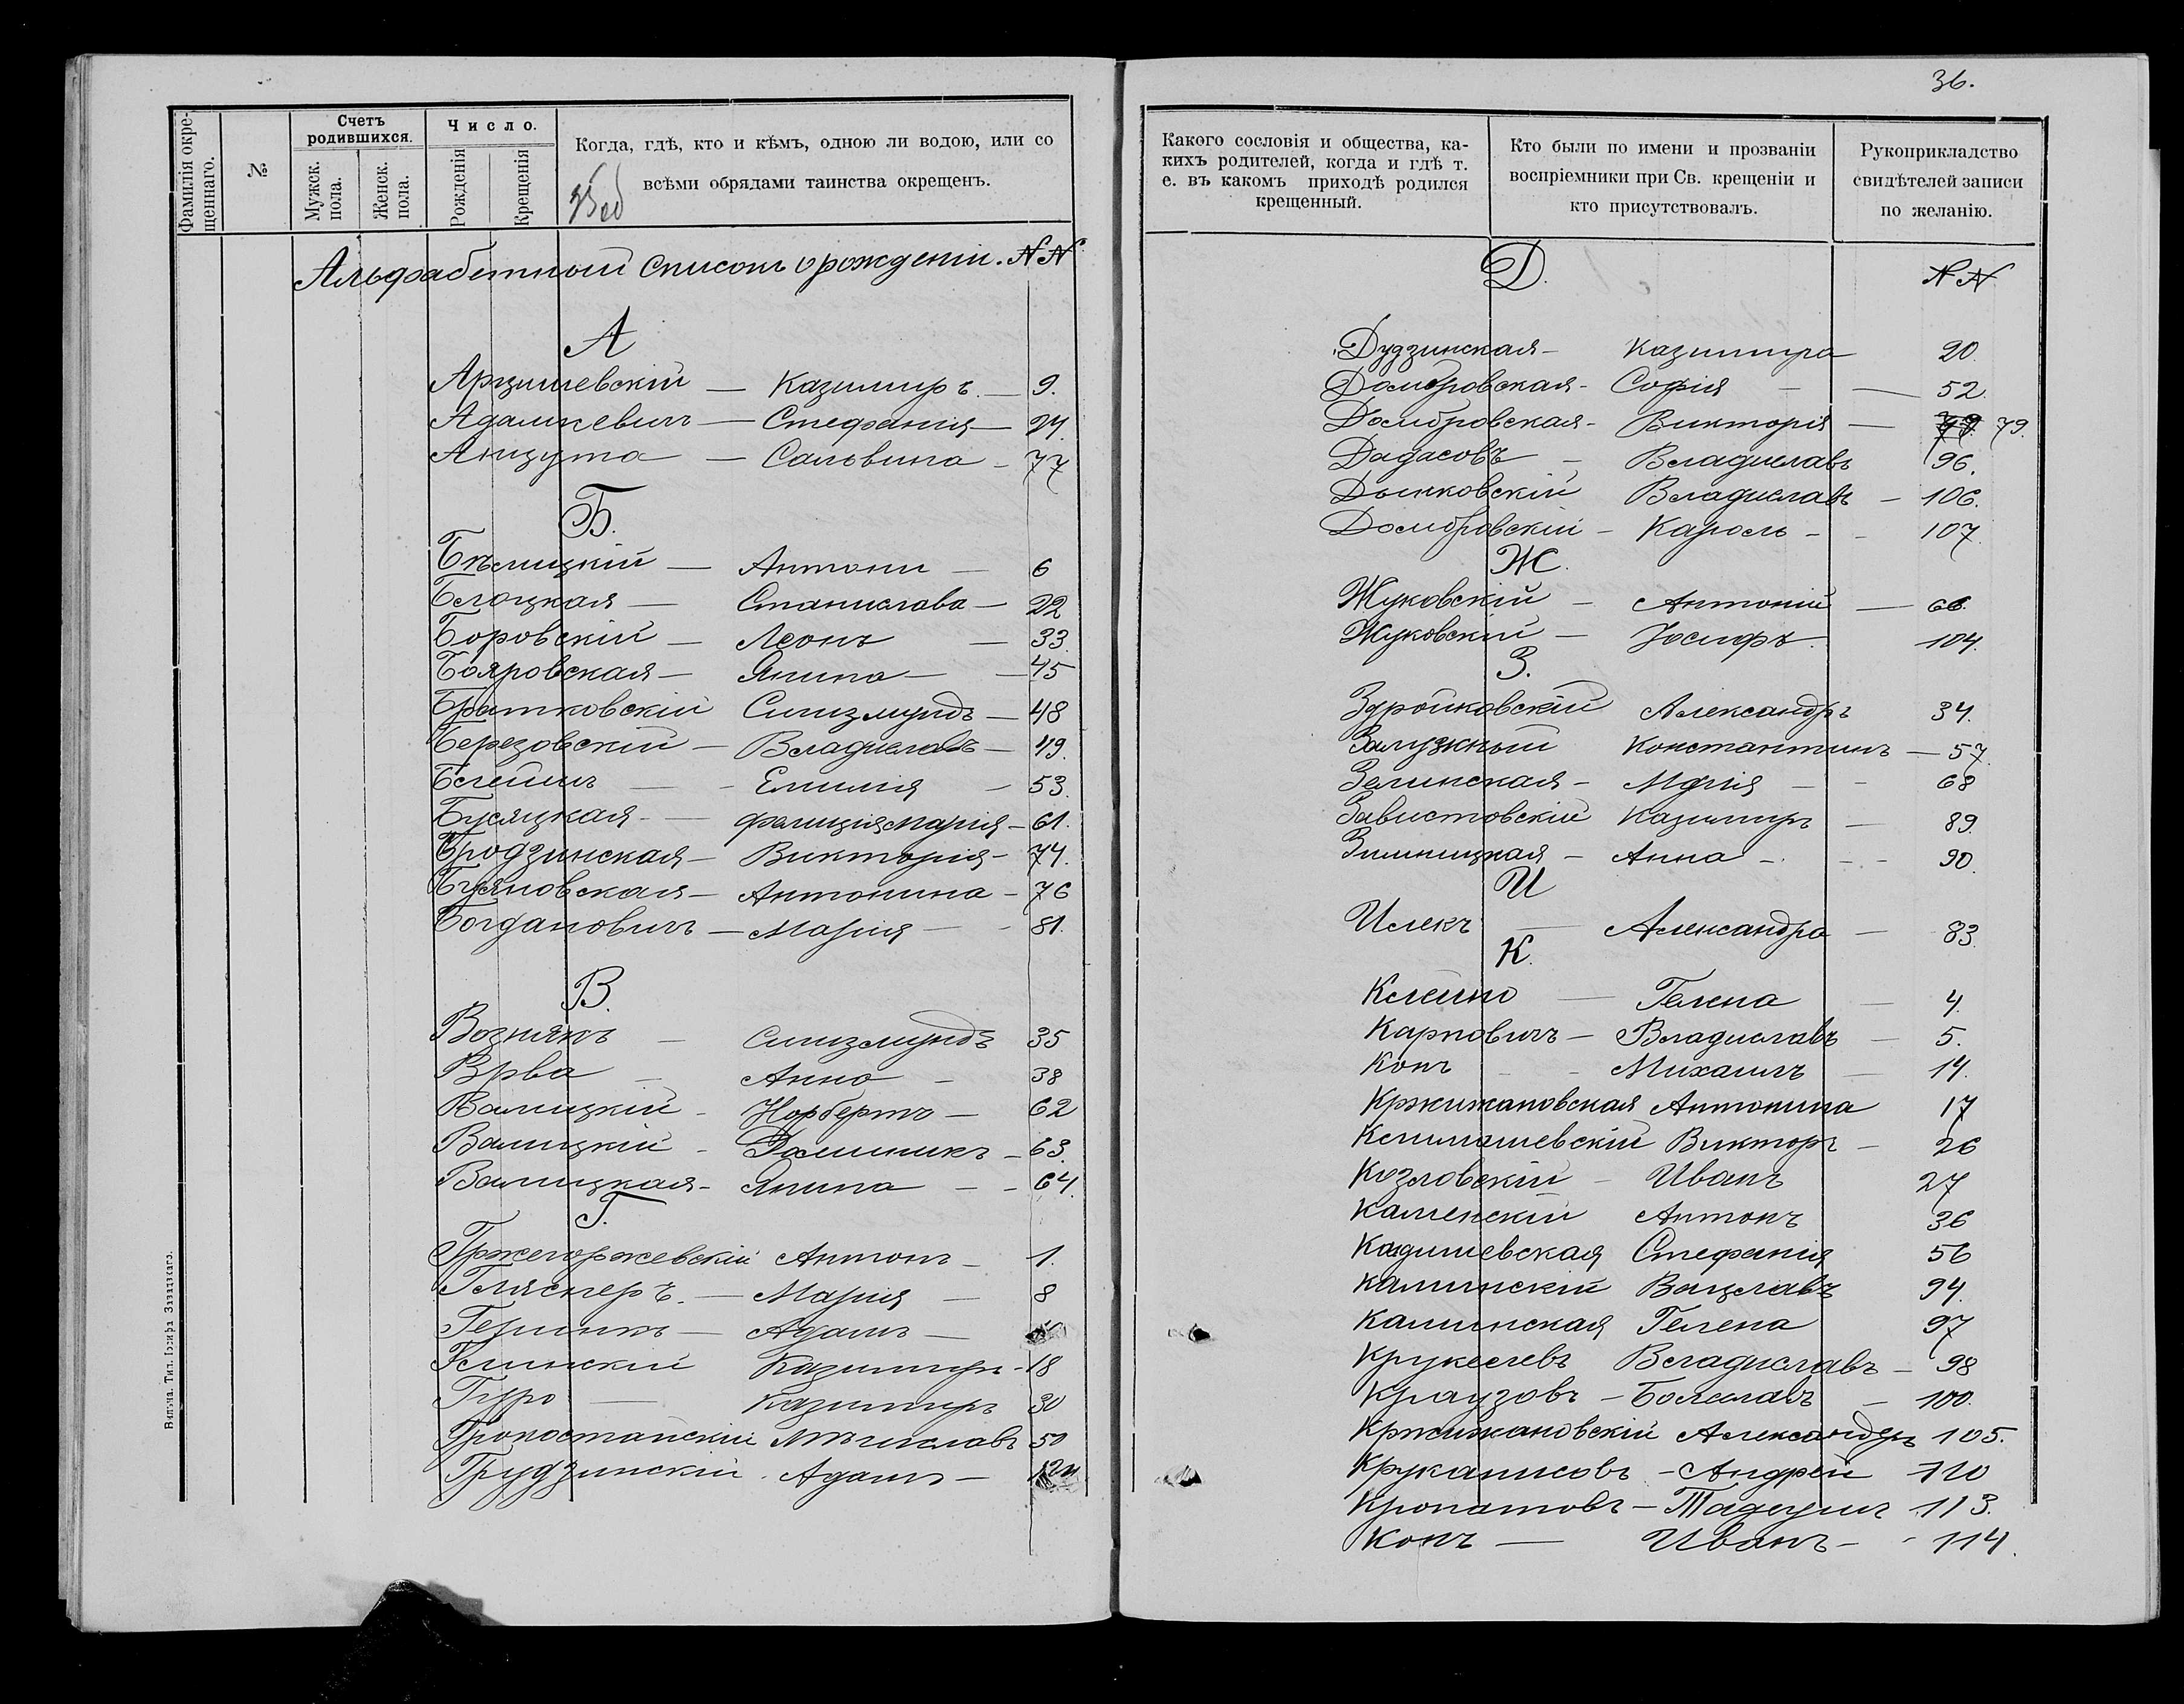 36.
Фамилія окрещеннаго.
№
Счетъ родившихся.
Мужск. пола.
Женск. пола.
Число.
Рожденія
Крещенія
Когда, гдѣ, кто и кѣмъ, одною ли водою, или со
всѣми обрядами таинства окрещенъ.
Альфабетный списокъ о рожденіи. NN
А
Арцишевскій — Казимиръ — 9.
Адамкевичъ — Стефанія — 24.
Анцута — Сальвина — 77
Б.
Бѣлицкій — Антони — 6
Блоцкая — Станислава — 22
Боровскій — Леонъ — 33.
Бояровская — Янина — 45
Братковскій Сигизмундъ — 48
Березовскій — Владиславъ — 49.
Емилія — 53.
Бусяцкая — Фелиція Марія — 61.
Бродзинская — Викторія — 74.
Буяновская — Антонина — 76
Богдановичъ — Марія — 81.
В.
Вознякъ — Сигизмундъ 35
Врва — Анна — 38
Валицкій — Норбертъ — 62
Валицкій — Доминикъ — 63.
Валицкая — Янина — 64.
Г.
Гржегоржевскій Антонъ — 1.
Гляснеръ — Марія — 8
Адамъ —
Глинскій Казимиръ — 18
Гуро — Казимиръ 30
Гроностайскій Мѣчиславъ 50
Грудзинскій. Адамъ —
Вильна. Тип. Іосифа Завадзкаго.
Какого сословія и общества, ка-
кихъ родителей, когда и гдѣ т.
е. въ какомъ приходѣ родился
крещенный.
Кто были по имени и прозваніи
воспріемники при Св. крещеніи и
кто присутствовалъ.
Рукоприкладство
свидѣтелей записи
по желанію.
Д. NN
Дудзинская — Казимира 20.
Домбровская — Софія — 52.
Домбровская — Викторія — 79.
Дадасовъ — Владиславъ 96.
Дынковскій Владиславъ — 106.
Домбровскій — Кароль — 107.
Ж.
Жуковскій — Антоній — 66.
Жуковскій — Іосифъ. 104.
З.
Здройковскій Александръ 34.
Залужный Константинъ — 57.
Зелинская — Марія — 68
Завистовскій Казимиръ — 89.
Зимницкая — Анна — 90.
И
Илекъ — Александра — 83.
К.
Клейно — Гелена — 4.
Карповичъ — Владиславъ — 5.
Конъ — Михаилъ — 14.
Кржижановская Антонина 17
Климашевскій Викторъ — 26
Козловскій — Иванъ 27
Каменскій Антонъ 36
Кадишевская Стефанія 56
Калинскій Вацлавъ 94.
Калинская Гелена 97
Владиславъ — 98
Краузовъ — Болеславъ — 100.
Кржижановскій Александръ 105.
Круканисовъ — Андрей 110
Кропатовъ — Тадеушъ 113.
Конъ — Иванъ — 114.